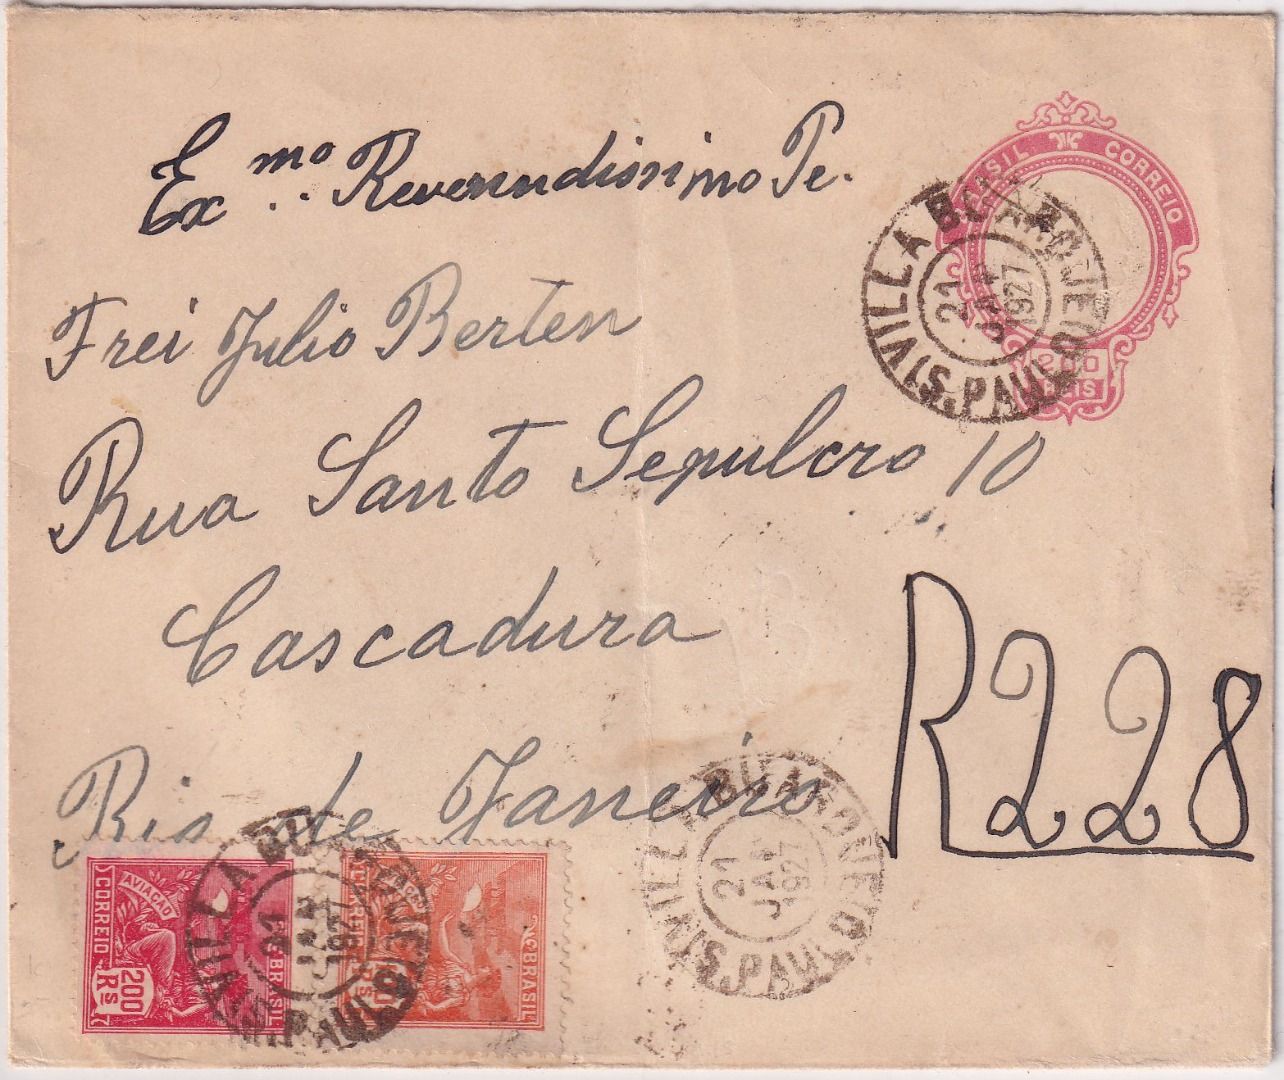 Ex.mo Reverendissimo Pe.
Frei Julio Berten
Rua Santo Sepulcro 10
Cascadura
Rio de Janeiro
R 228
BRASIL CORREIO
200
REIS
VILLA
21
JAN
1927
(S. PAULO)
VILLA
21
JAN
1927
(S. PAULO)
AVIAÇÃO
CORREIO
200
Rs
BRASIL
VILLA
1927
PAULO
CORREIO
BRASIL